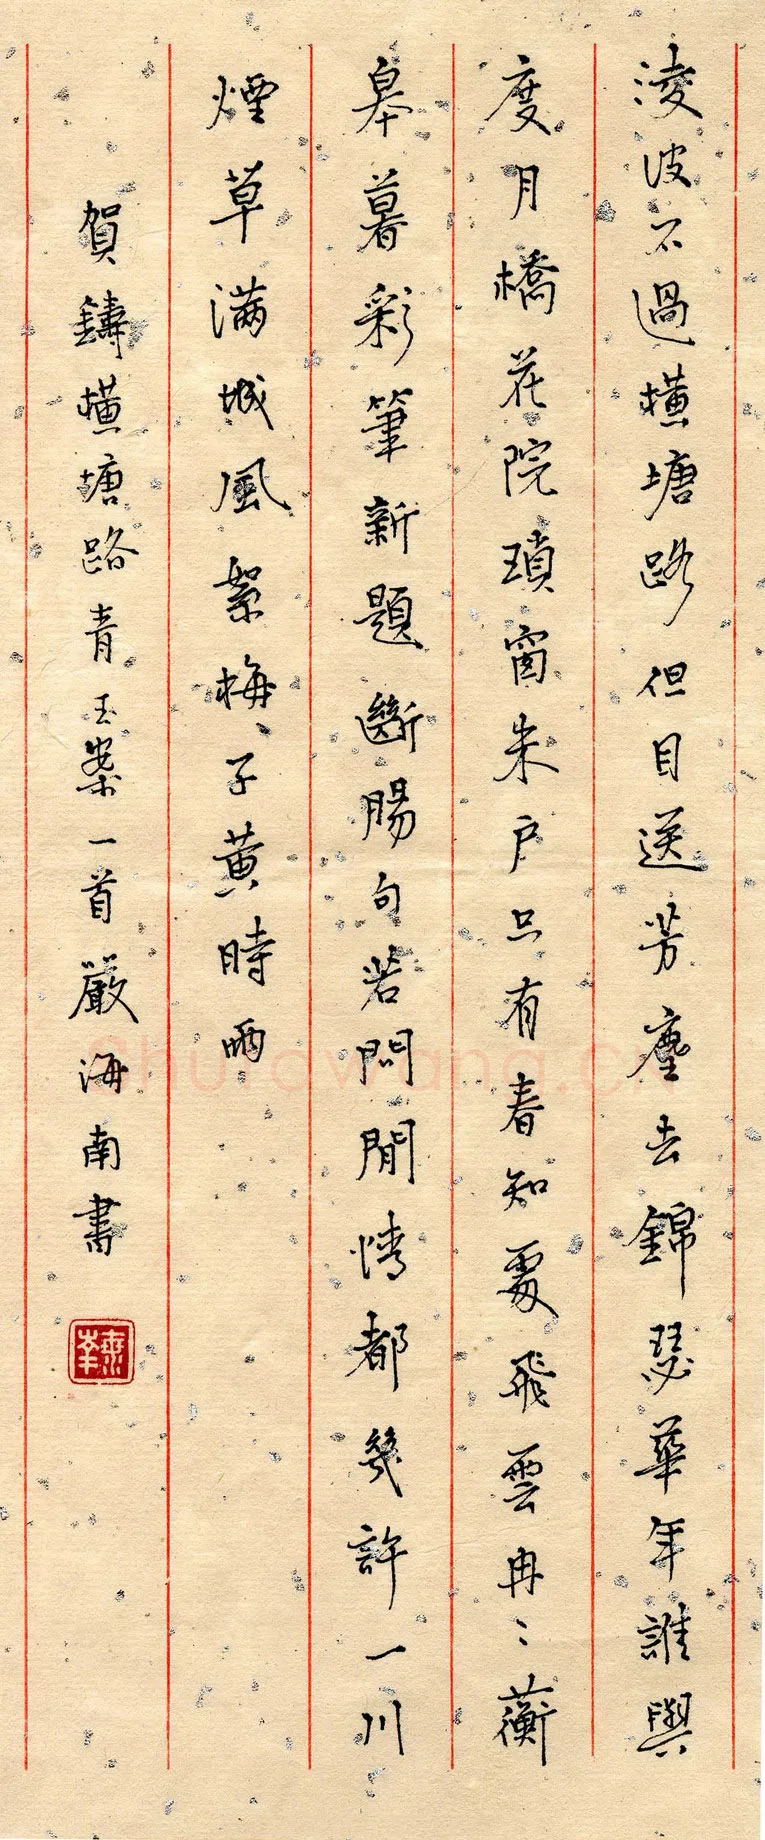 淩波不過橫塘路但目送芳塵去錦瑟華年誰與
度月橋花院瑣窗朱戶只有春知處飛雲冉〻蘅
皋暮彩筆新題斷腸句若問閒情都幾許一川
煙草滿城風絮梅子黃時雨
賀鑄橫塘路青玉案一首嚴海南書
Shufawang.CN